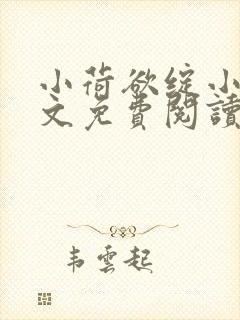 小荷欲綻小
文免費閱讀
韦雲起